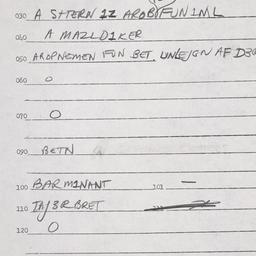 030 A SHTERN 1Z AROBIFUNIML
040 A MAZLDIKER
050 AROPNEMEN FUN BET UNLEJGN AF D3
060 O
070 O
090 BETN
100 BARM1NANT 101 —
110 IAJ3R BRET
120 O